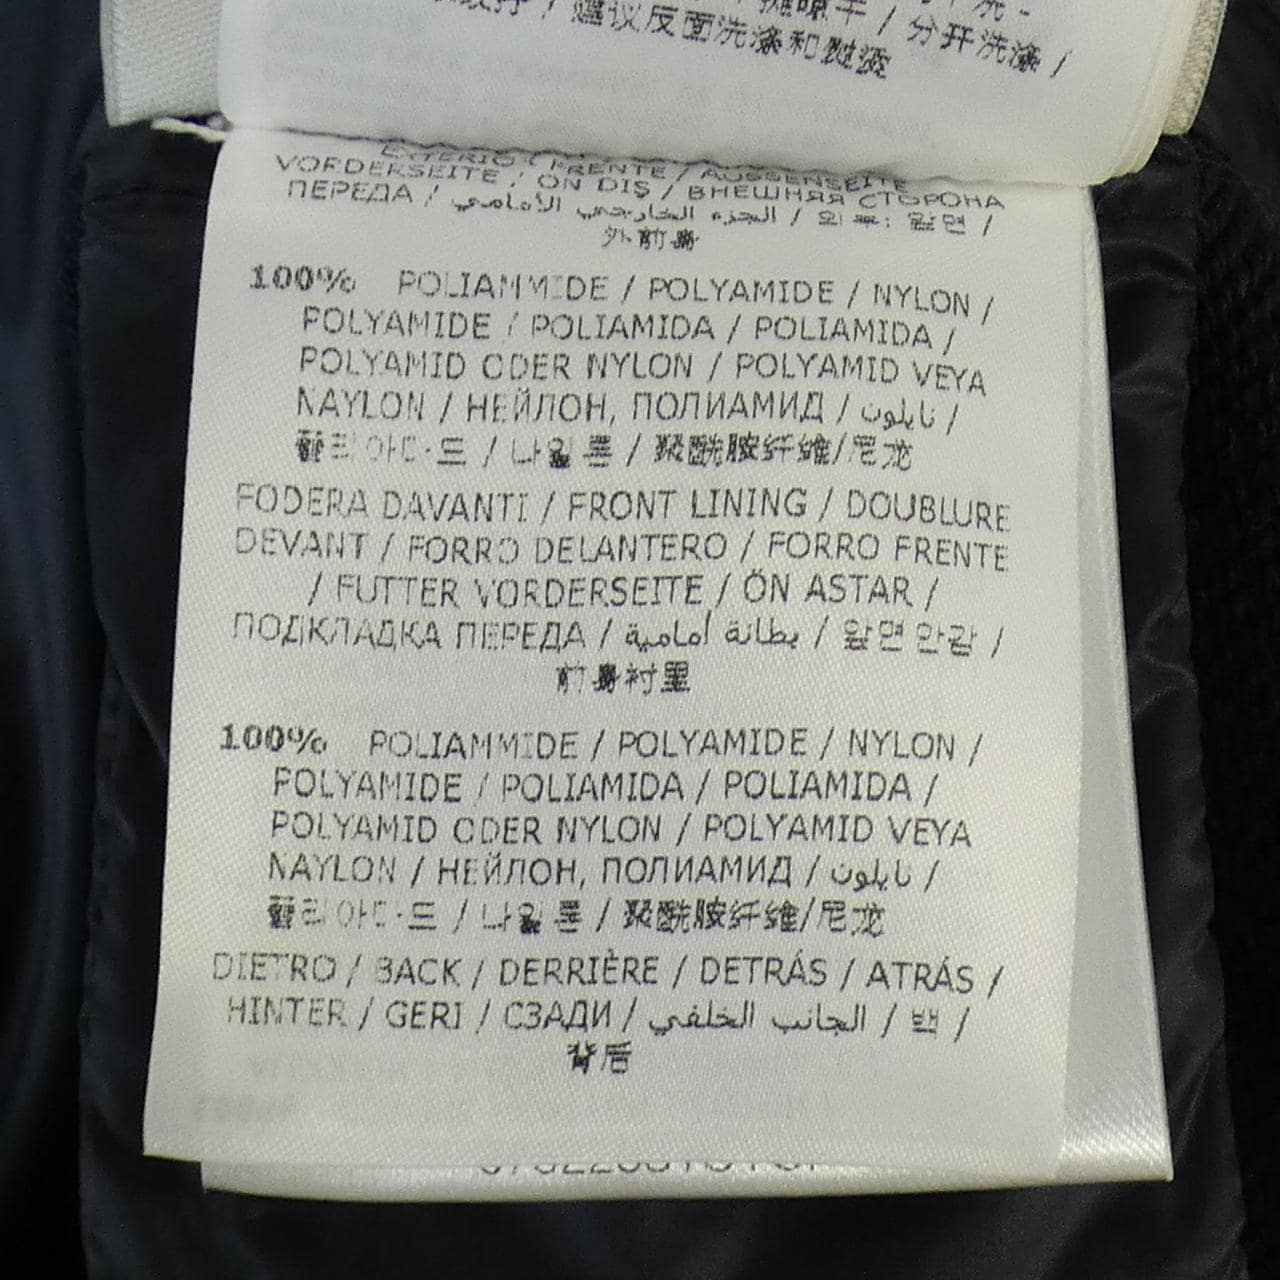 建议反面洗涤和熨烫 / 分开洗涤 /
EXTERIO / FRENTE / AUSSENSEITE
VORDERSEITE / ÖN DIŞ / ВНЕШНЯЯ СТОРОНА
ПЕРЕДА / الجزء الخارجي الأمامي / 외부: 앞면 /
外前身
100% POLIAMMIDE / POLYAMIDE / NYLON /
POLYAMIDE / POLIAMIDA / POLIAMIDA /
POLYAMID ODER NYLON / POLYAMID VEYA
NAYLON / НЕЙЛОН, ПОЛИАМИД / نايلون /
폴리아미드 / 나일론 / 聚酰胺纤维/尼龙
FODERA DAVANTI / FRONT LINING / DOUBLURE
DEVANT / FORRO DELANTERO / FORRO FRENTE
/ FUTTER VORDERSEITE / ÖN ASTAR /
ПОДКЛАДКА ПЕРЕДА / بطانة أمامية / 앞면 안감 /
前身衬里
100% POLIAMMIDE / POLYAMIDE / NYLON /
POLYAMIDE / POLIAMIDA / POLIAMIDA /
POLYAMID ODER NYLON / POLYAMID VEYA
NAYLON / НЕЙЛОН, ПОЛИАМИД / نايلون /
폴리아미드 / 나일론 / 聚酰胺纤维/尼龙
DIETRO / BACK / DERRIÈRE / DETRÁS / ATRÁS /
HINTER / GERI / СЗАДИ / الجانب الخلفي / 백 /
背后